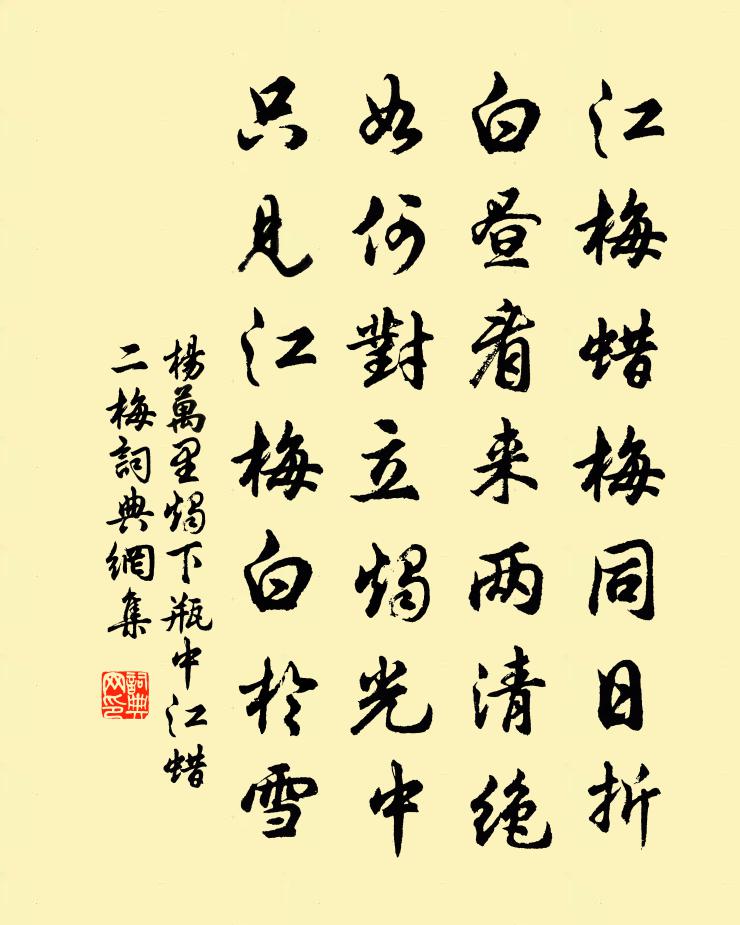 江梅蜡梅同日折
白昼看来两清绝
如何對立燭光中
只見江梅白於雪
楊萬里燭下瓶中江蜡
二梅詞典網集
詞典
网印